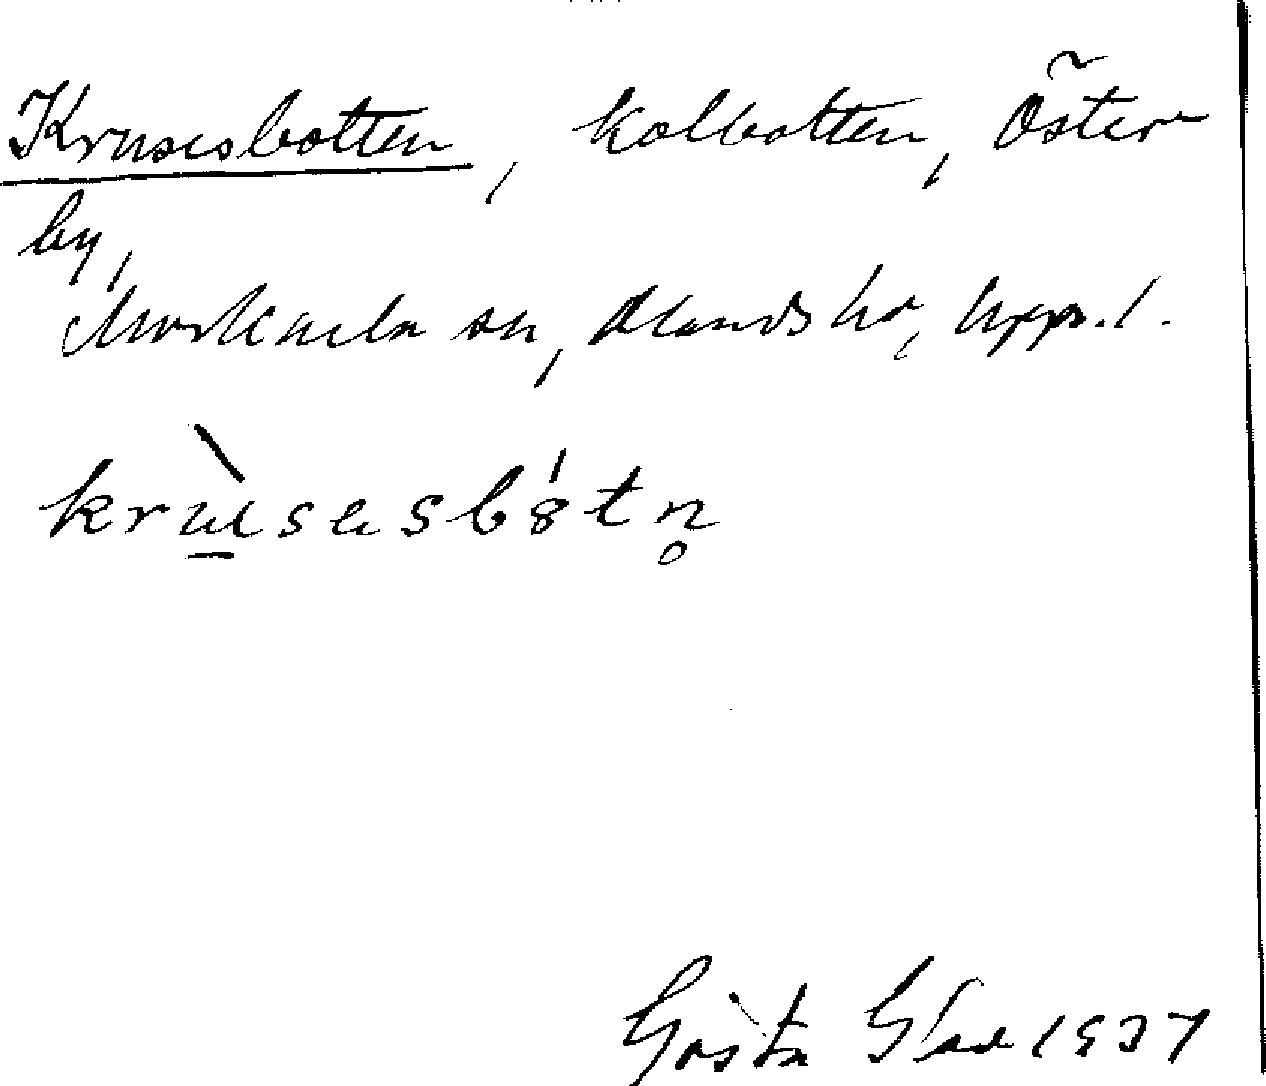 Krusesbotten, kolbotten, Öster-
by,
Morkarla sn, Olands hd, Uppl.
Gösta Glad 1937